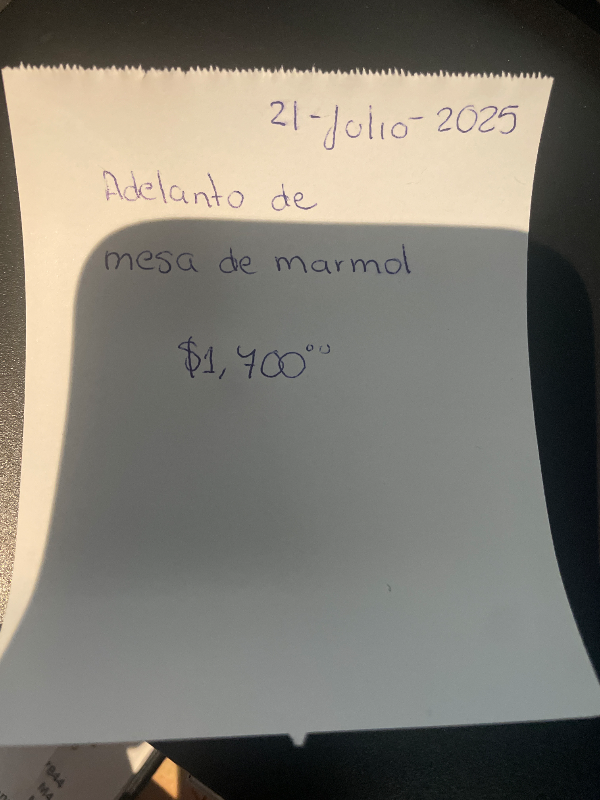 21-Julio-2025
Adelanto de
mesa de marmol
$1,700⁰⁰